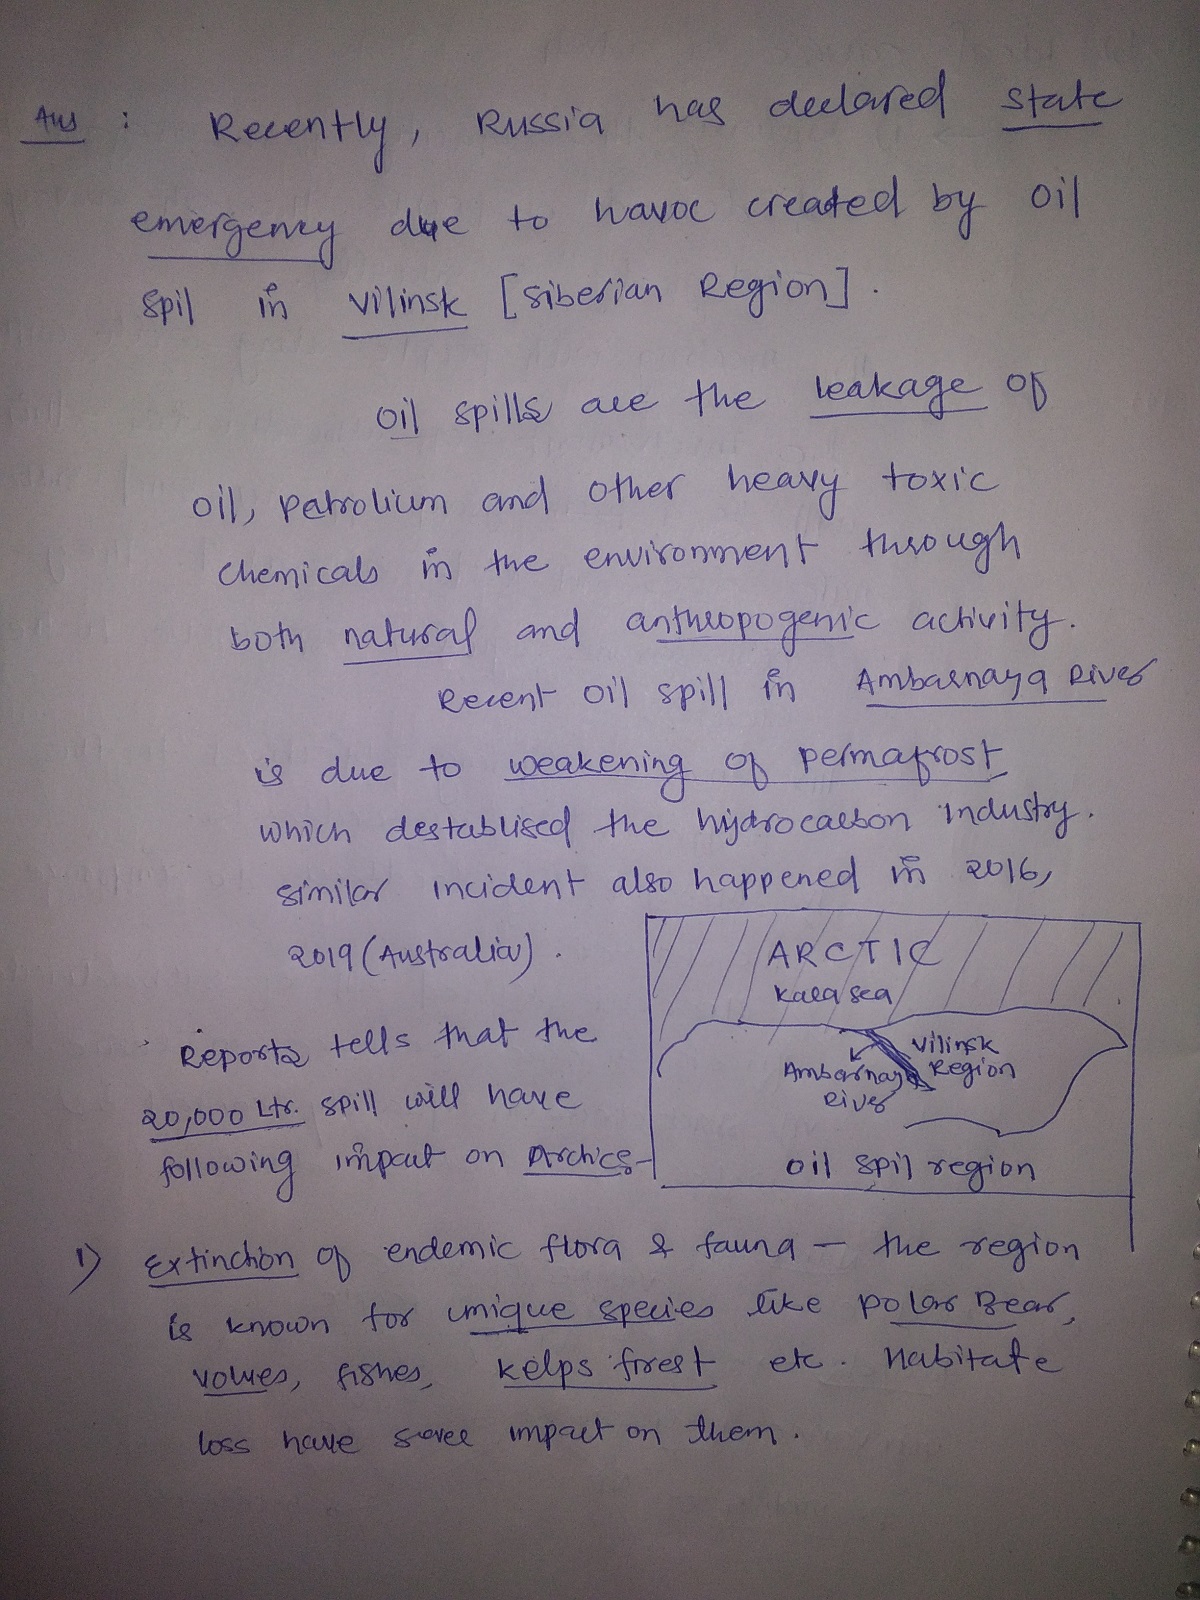 Ans : Recently, Russia has declared state
emergency due to havoc created by oil
spil in Vilinsk [Siberian Region].
oil spills are the leakage of
oil, petrolium and other heavy toxic
chemicals in the environment through
both natural and anthropogenic activity.
Recent oil spill in Ambarnaya River
is due to weakening of permafrost
which destablised the hydrocarbon industry.
similar incident also happened in 2016,
2019 (Australia).
ARCTIC
Kara sea
Vilinsk
Region
Ambarnaya
River
oil spil region
Reports tells that the
20,000 Ltr. spill will have
following impact on Arctics-
1) Extinction of endemic flora & fauna – the region
is known for unique species like polar Bear,
volves, fishes, kelps forest etc. Habitate
loss have impact on them.